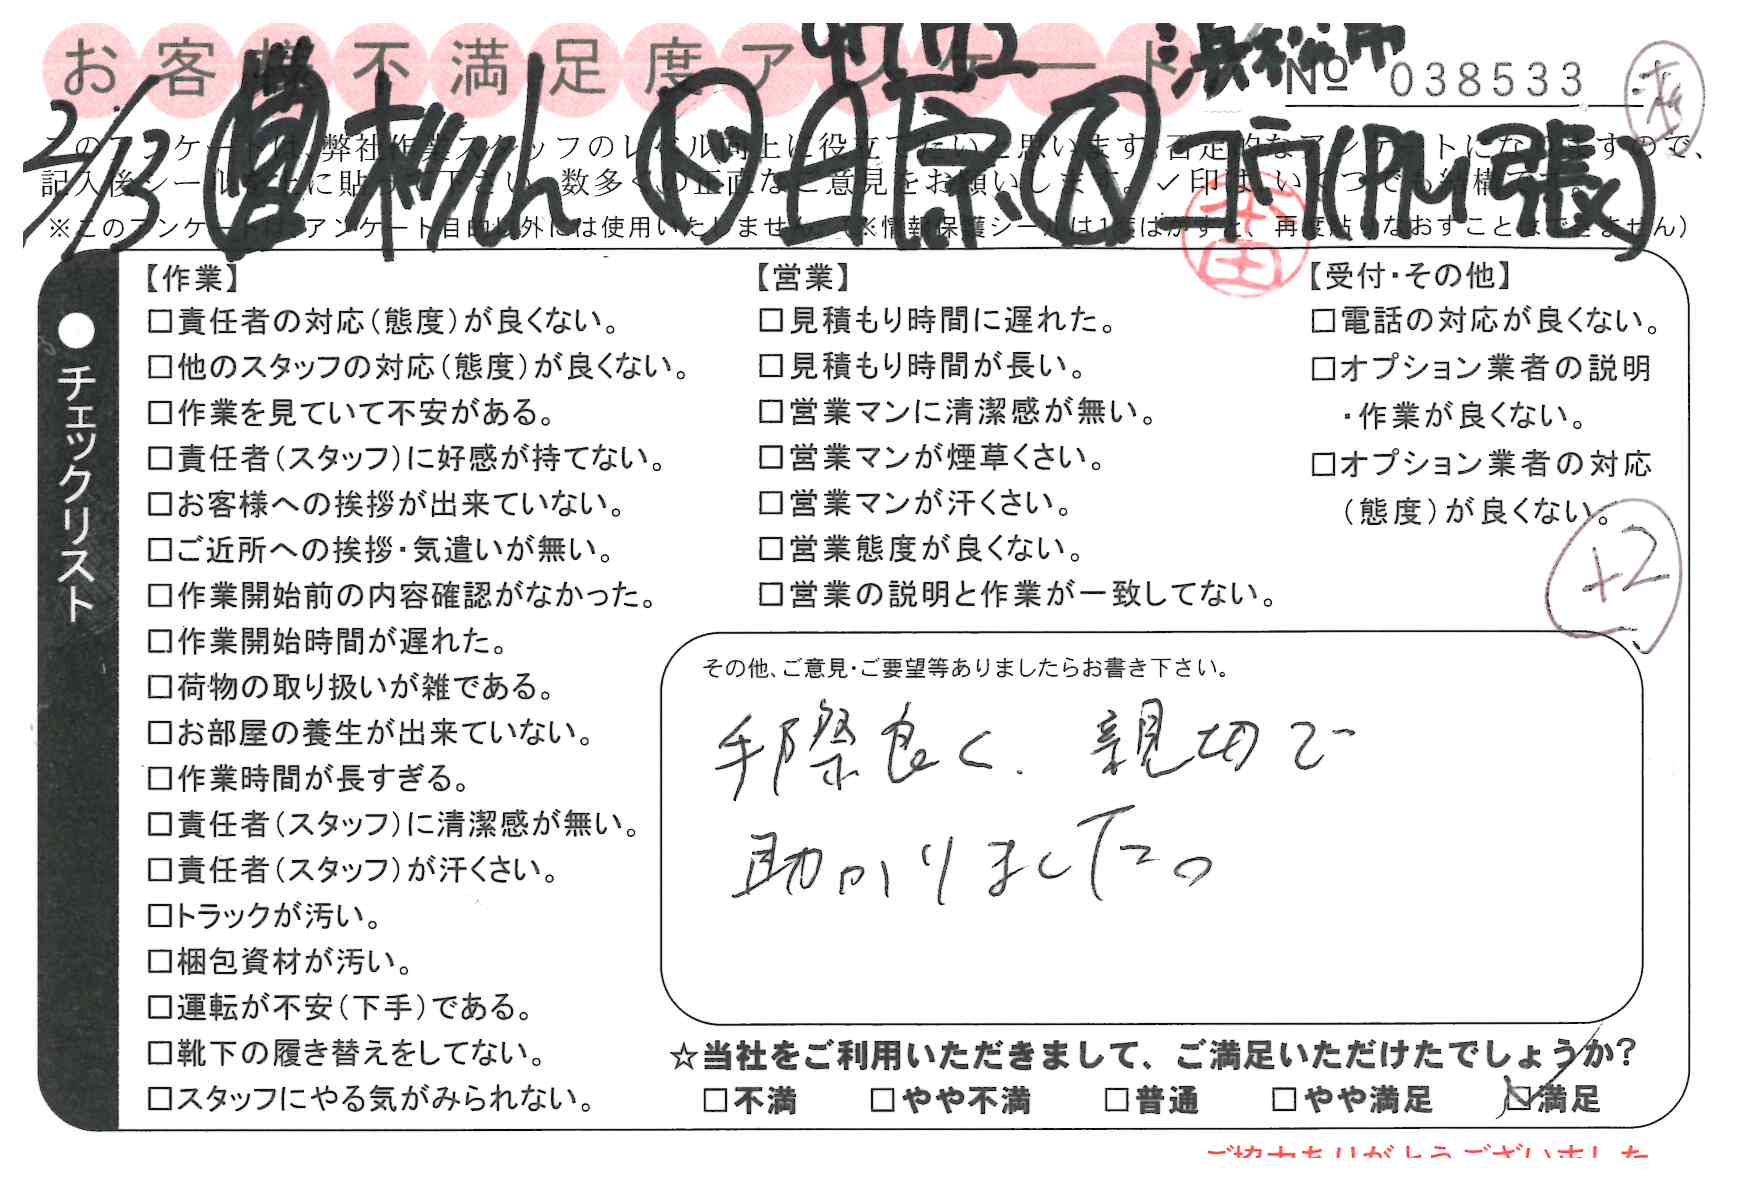 お客様不満足度アンケート
浜松市
№ 038533
2/13
このアンケートは、弊社作業スタッフのレベル向上に役立てたいと思います。否定的なアンケートになりますので、
記入後シールを上に貼って下さい。数多くの正直なご意見をお願いします。✓印は、いくつでも結構です。
※このアンケートは、アンケート目的以外には使用いたしません。(※情報保護シールは1度はがすと、再度貼りなおすことはできません)
●チェックリスト
【作業】
□責任者の対応(態度)が良くない。
□他のスタッフの対応(態度)が良くない。
□作業を見ていて不安がある。
□責任者(スタッフ)に好感が持てない。
□お客様への挨拶が出来ていない。
□ご近所への挨拶・気遣いが無い。
□作業開始前の内容確認がなかった。
□作業開始時間が遅れた。
□荷物の取り扱いが雑である。
□お部屋の養生が出来ていない。
□作業時間が長すぎる。
□責任者(スタッフ)に清潔感が無い。
□責任者(スタッフ)が汗くさい。
□トラックが汚い。
□梱包資材が汚い。
□運転が不安(下手)である。
□靴下の履き替えをしてない。
□スタッフにやる気がみられない。
【営業】
□見積もり時間に遅れた。
□見積もり時間が長い。
□営業マンに清潔感が無い。
□営業マンが煙草くさい。
□営業マンが汗くさい。
□営業態度が良くない。
□営業の説明と作業が一致してない。
【受付・その他】
□電話の対応が良くない。
□オプション業者の説明
・作業が良くない。
□オプション業者の対応
(態度)が良くない。
+2
その他、ご意見・ご要望等ありましたらお書き下さい。
手際良く、親切で
助かりました。
☆当社をご利用いただきまして、ご満足いただけたでしょうか?
□不満 □やや不満 □普通 □やや満足 ☑満足
ご協力ありがとうございました